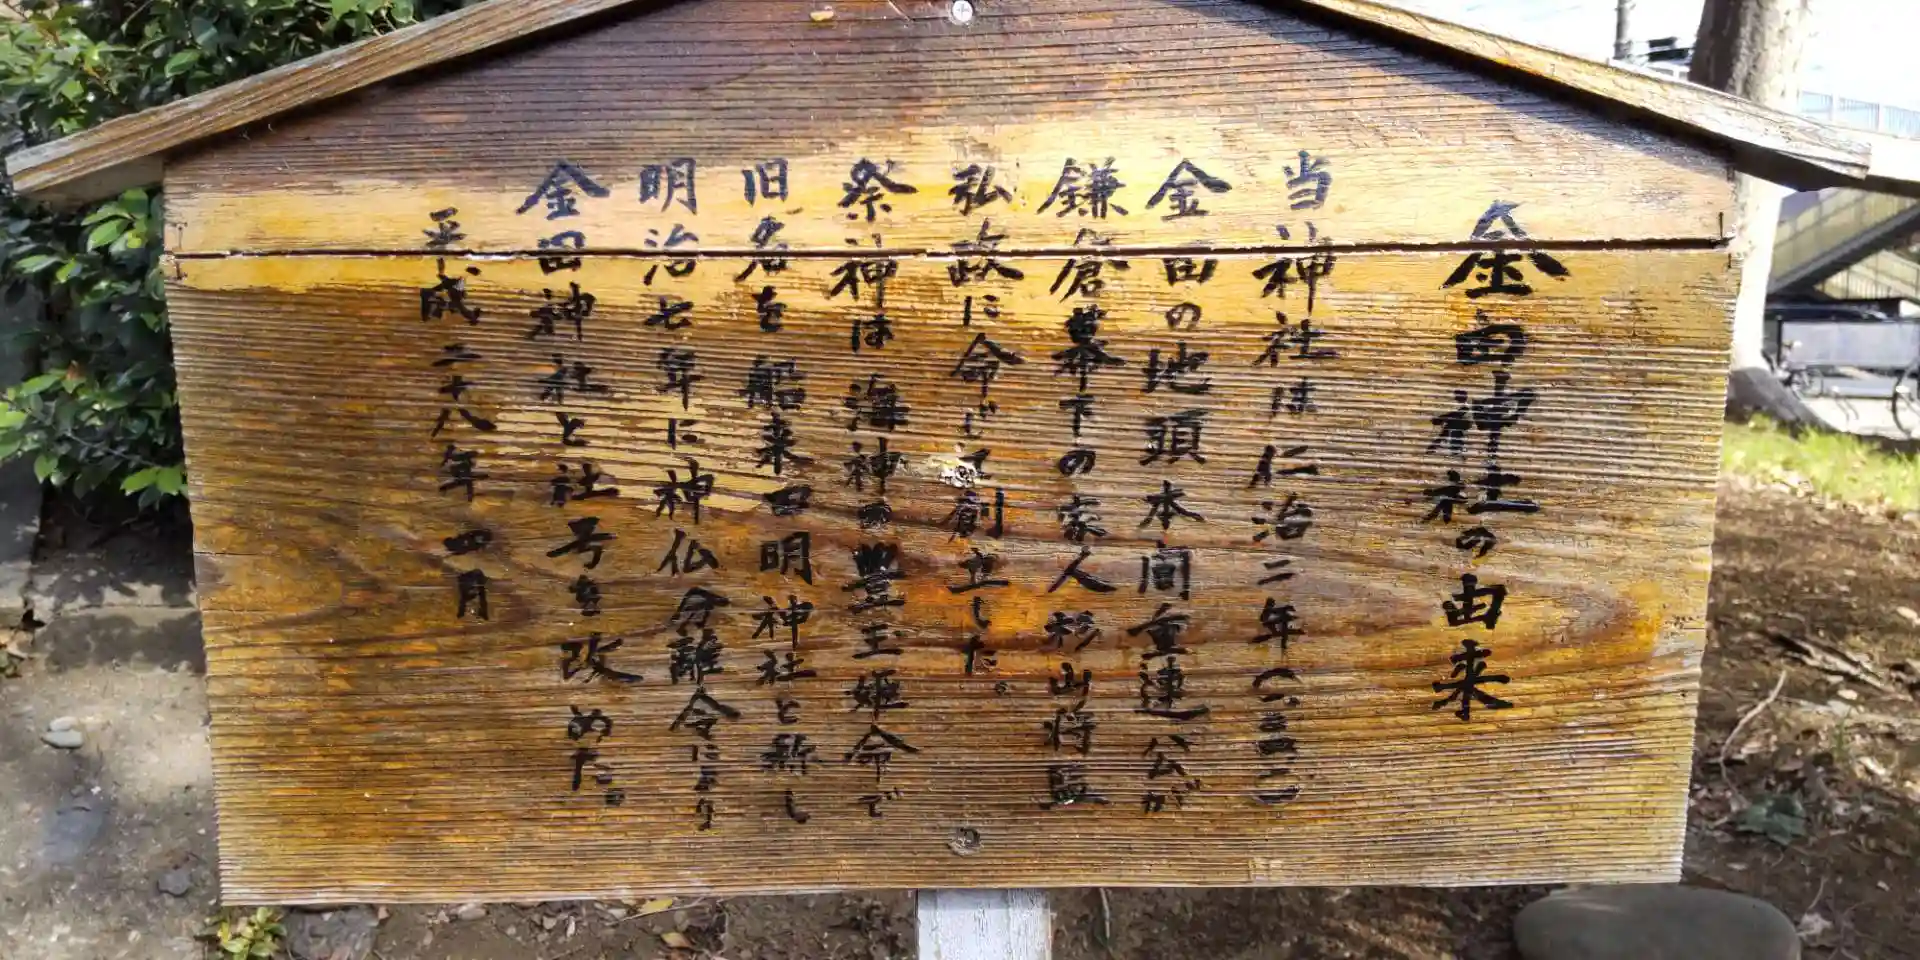 金田神社の由来
当神社は仁治二年(一二四二)
金田の地頭本間重連公が
鎌倉幕下の家人杉山将監
弘政に命じて創立した。
祭神は海神の豊玉姫命で
旧名を船来田明神社と称し
明治七年に神仏分離令により
金田神社と社号を改めた。
平成二十八年四月